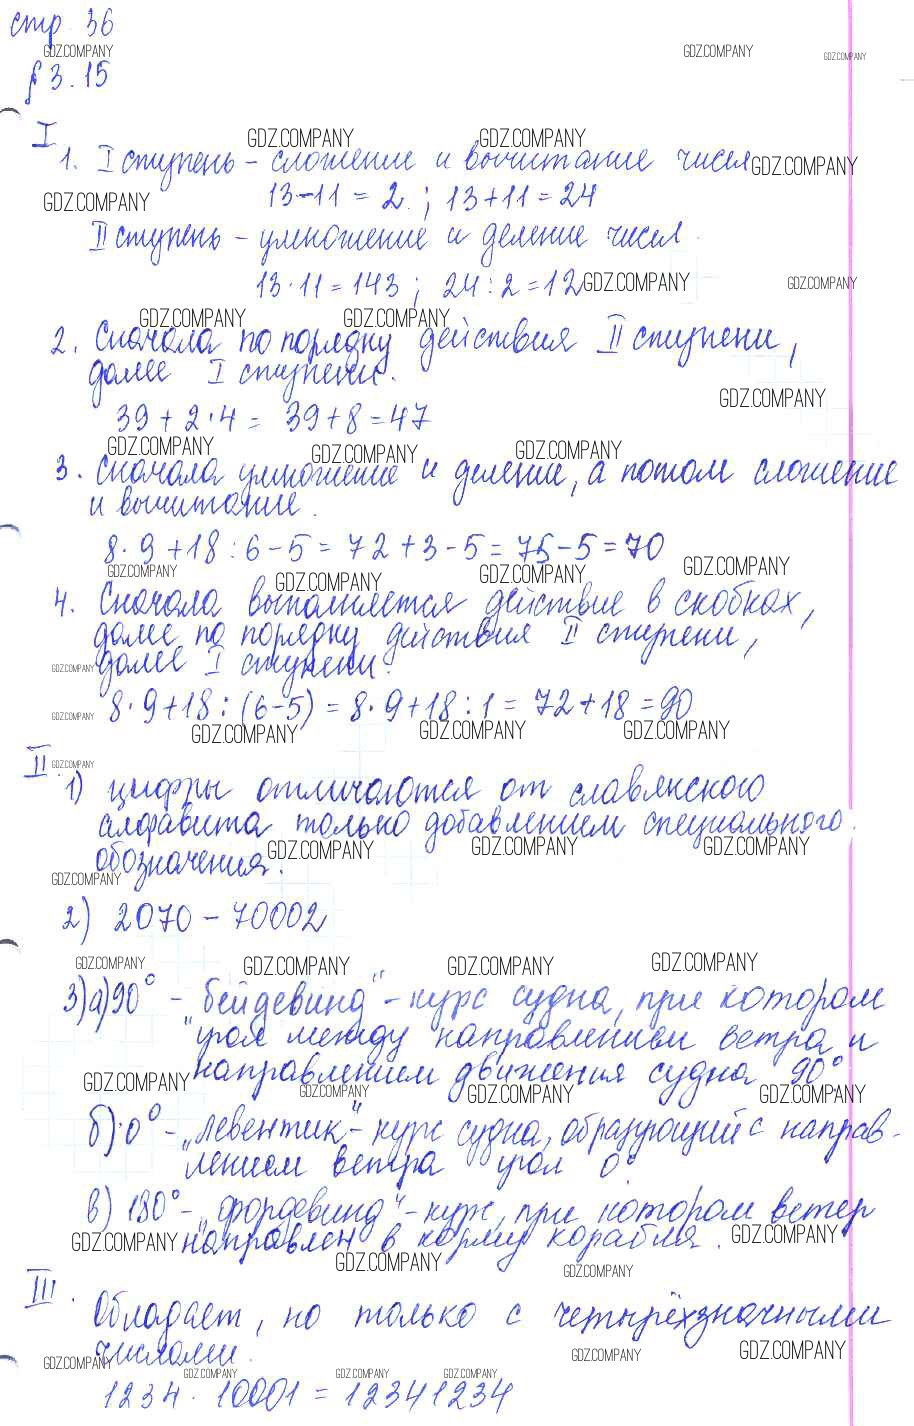 стр. 36
GDZ.COMPANY GDZ.COMPANY GDZ.COMPANY
§ 3.15
I
GDZ.COMPANY GDZ.COMPANY
1. I ступень - сложение и вычитание чисел GDZ.COMPANY
GDZ.COMPANY 13-11 = 2. ; 13+11 = 24
II ступень - умножение и деление чисел.
13·11 = 143 ; 24:2 = 12 GDZ.COMPANY GDZ.COMPANY
GDZ.COMPANY GDZ.COMPANY
2. Сначала по порядку действия II ступени,
далее I ступени.
GDZ.COMPANY
39 + 2·4 = 39+8 = 47
GDZ.COMPANY GDZ.COMPANY GDZ.COMPANY
3. Сначала умножение и деление, а потом сложение
и вычитание.
8·9 +18 : 6-5 = 72+3-5 = 75-5 = 70
GDZ.COMPANY GDZ.COMPANY GDZ.COMPANY GDZ.COMPANY
4. Сначала выполняется действие в скобках,
далее по порядку действия II ступени,
GDZ.COMPANY далее I ступени.
GDZ.COMPANY 8·9+18 : (6-5) = 8·9+18 : 1 = 72+18 = 90
GDZ.COMPANY GDZ.COMPANY GDZ.COMPANY
II. GDZ.COMPANY
1) цифры отличаются от славянского
алфавита только добавлением специального
обозначения. GDZ.COMPANY GDZ.COMPANY GDZ.COMPANY
GDZ.COMPANY
2) 2070 - 70002
GDZ.COMPANY GDZ.COMPANY GDZ.COMPANY GDZ.COMPANY
3) а) 90° - „бейдевинд" - курс судна, при котором
угол между направлением ветра и
GDZ.COMPANY направлением движения судна 90°.
GDZ.COMPANY GDZ.COMPANY GDZ.COMPANY
б) 0° - „левентик" - курс судна, образующий с направ-
лением ветра угол 0°.
в) 180° - „фордевинд" - курс, при котором ветер
GDZ.COMPANY направлен в корму корабля. GDZ.COMPANY
GDZ.COMPANY GDZ.COMPANY
III.
Обладает, но только с четырёхзначными
числами.
GDZ.COMPANY GDZ.COMPANY GDZ.COMPANY
GDZ.COMPANY GDZ.COMPANY GDZ.COMPANY
1234 · 10001 = 12341234